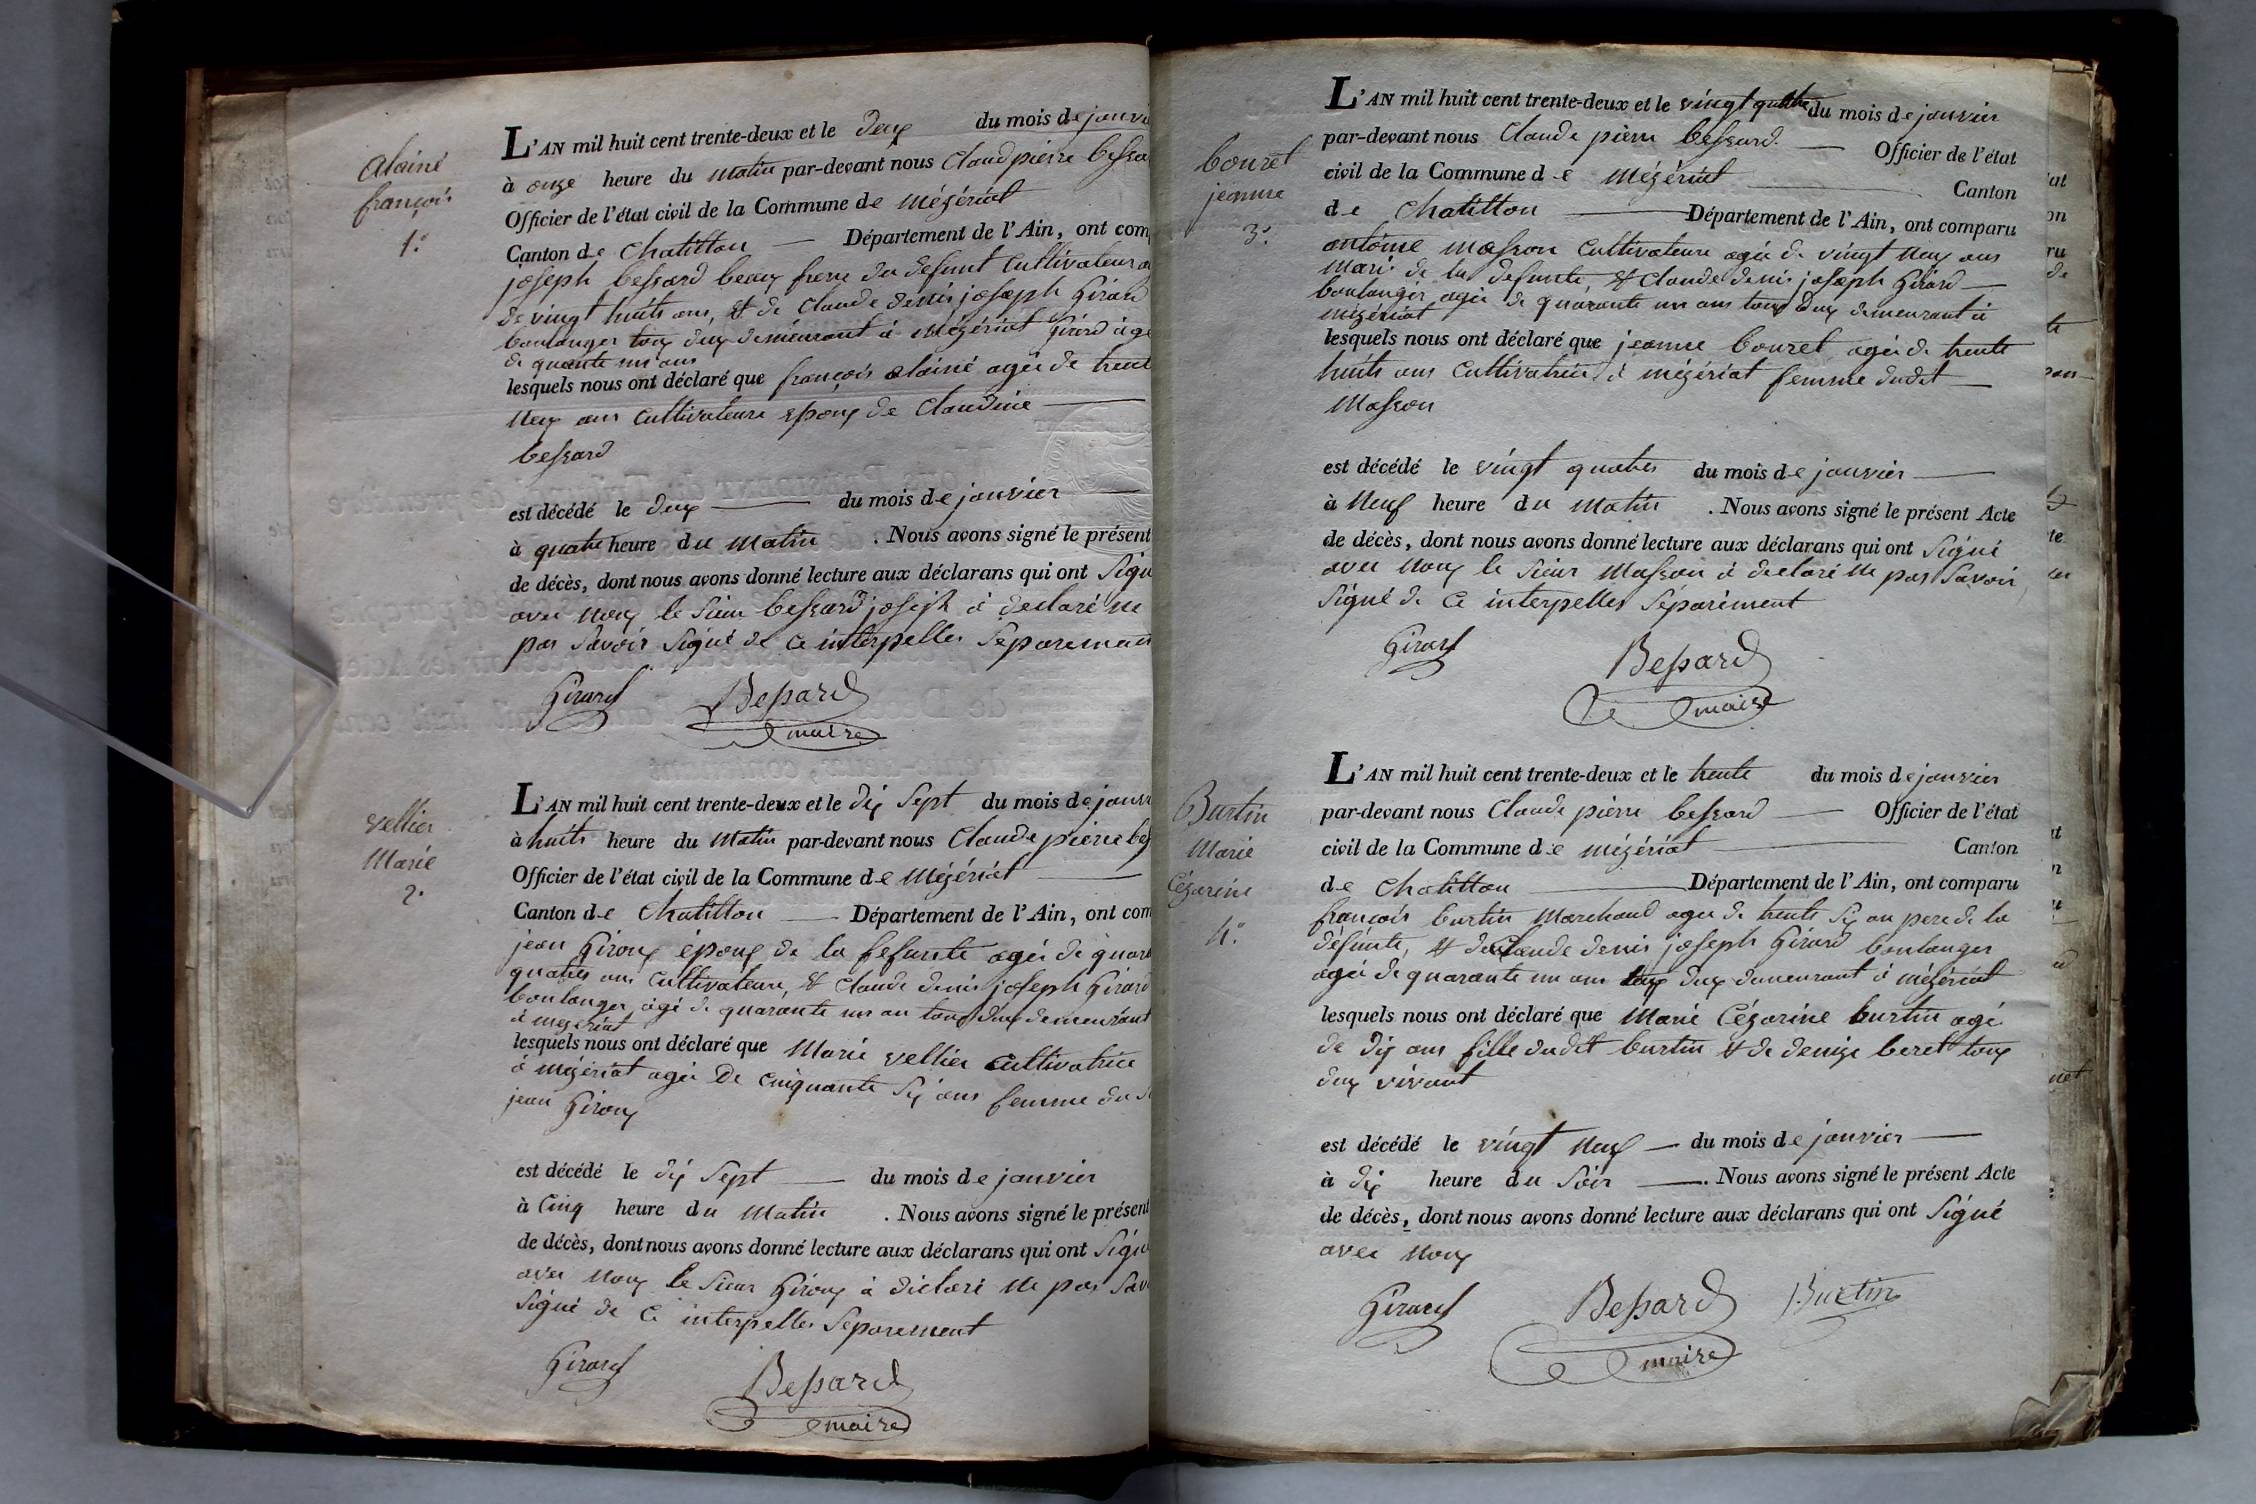 alainé
françois
1.°
L'AN mil huit cent trente-deux et le deux du mois de janvi
à onze heure du matin par-devant nous Claud pierre bessa
Officier de l'état civil de la Commune de mézériat
Canton de Chatillon — Département de l'Ain, ont com
joseph bessard beaux frere du defunt Cultivateur a
de vingt huits ans, & de Claude denis joseph Girard
boulanger toux deux demeurant à mézériat Girard agé
de quarante un ans
lesquels nous ont déclaré que françois alainé agée de trent
neuf ans Cultivateure epoux de Claudine
bessard
est décédé le deux — du mois de janvier
à quatre heure du matin . Nous avons signé le présent
de décès, dont nous avons donné lecture aux déclarans qui ont Signé
avec nous le Sieur bessard joseph à declaré ne
pas Savoir Signé de Ce interpellés Séparement
Girard
Bessard
maire
vellier
Marie
2.°
L'AN mil huit cent trente-deux et le dix Sept du mois de janvi
à huits heure du Matin par-devant nous Claude pierre bes
Officier de l'état civil de la Commune de Mézériat
Canton de Chatillon — Département de l'Ain, ont com
jean Giroux époux de la defunte agée de quara
quatres ans Cultivateure, & Claude denis joseph Girard
boulanger, agé de quarante un an toux deux demeurant
à mezeriat
lesquels nous ont déclaré que Marie vellier Cultivatrice
à mézériat agée De Cinquante Six ans femme du
jean Giroux
est décédé le dix Sept — du mois de janvier
à Cinq heure du Matin . Nous avons signé le présent
de décès, dont nous avons donné lecture aux déclarans qui ont Signé
avec nous le Sieur Giroux à déclaré ne pas Sav
Signé de Ce interpellés Séparement
Girard
Bessard
maire
bouret
jeanne
3.°
L'AN mil huit cent trente-deux et le vingt quatre du mois de janvier
par-devant nous Claude pierre bessard — Officier de l'état
civil de la Commune de mézériat — Canton
de Chatillon — Département de l'Ain, ont comparu
antoine masson Cultivateure agée de vingt neuf ans
Mari de la defunte, & Claude denis joseph Girard —
boulanger agée de quarante un ans toux deux demeurant à
mézériat
lesquels nous ont déclaré que jeanne bouret agée de trente
huits ans Cultivatrice à mézériat femme dudit —
Masson
est décédé le vingt quatres du mois de janvier —
à Neuf heure du matin . Nous avons signé le présent Acte
de décès, dont nous avons donné lecture aux déclarans qui ont Signé
avec nous le Sieur Masson à declaré ne pas Savoir
Signé de Ce interpellés Séparément
Girard
Bessard
maire
Burtin
Marie
Cézarine
4.°
L'AN mil huit cent trente-deux et le trente du mois de janvier
par-devant nous Claude pierre bessard — Officier de l'état
civil de la Commune de mézériat — Canton
de Chatillon — Département de l'Ain, ont comparu
françois burtin Marchand agée de trente Six an pere de la
défunte, & de Claude denis joseph Girard boulanger
agée de quarante un ans toux deux demeurant à mézériat
lesquels nous ont déclaré que Marie Cézarine burtin agé
de dix ans fille dudit burtin & de denize beret toux
deux vivant
est décédé le vingt neuf — du mois de janvier —
à dix heure du Soir — . Nous avons signé le présent Acte
de décès, dont nous avons donné lecture aux déclarans qui ont Signé
avec nous
Girard
Bessard
Burtin
maire